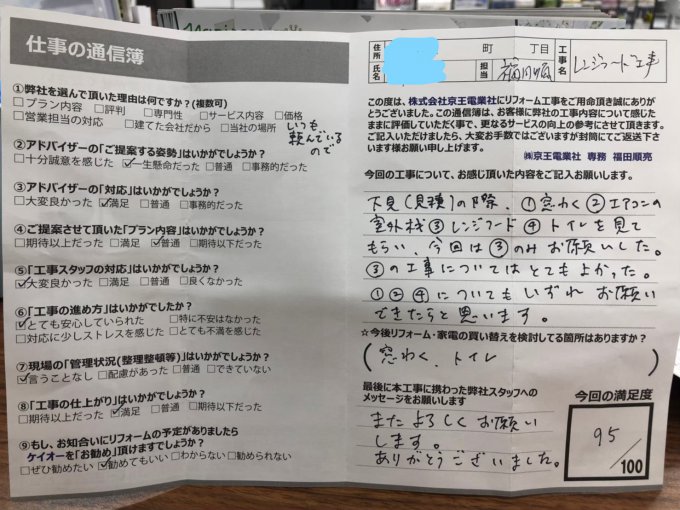 仕事の通信簿
①弊社を選んで頂いた理由は何ですか?(複数可)
□プラン内容 □評判 □専門性 □サービス内容 □価格
□営業担当の対応 □建てた会社だから □当社の場所
いつも
頼んでいる
ので
②アドバイザーの「ご提案する姿勢」はいかがでしょうか?
□十分誠意を感じた ☑一生懸命だった □普通 □事務的だった
③アドバイザーの「対応」はいかがでしょうか?
□大変良かった ☑満足 □普通 □事務的だった
④ご提案させて頂いた「プラン内容」はいかがでしょうか?
□期待以上だった □満足 ☑普通 □期待以下だった
⑤「工事スタッフの対応」はいかがでしょうか?
☑大変良かった □満足 □普通 □良くなかった
⑥「工事の進め方」はいかがでしたか?
☑とても安心していられた □特に不安はなかった
□対応に少しストレスを感じた □とても不満を感じた
⑦現場の「管理状況(整理整頓等)」はいかがでしょうか?
☑言うことなし □配慮があった □普通 □できていない
⑧「工事の仕上がり」はいかがでしょうか?
□期待以上だった ☑満足 □普通 □期待以下だった
⑨もし、お知合いにリフォームの予定がありましたら
ケイオーを「お勧め」頂けますでしょうか?
□ぜひ勧めたい ☑勧めてもいい □わからない □勧められない
住所 町 丁目
氏名 担当
工事名 レンジフード工事
この度は、株式会社京王電業社にリフォーム工事をご用命頂き誠にありが
とうございました。この通信簿は、お客様に弊社の工事内容について感じた
ままに評価していただく事で、更なるサービスの向上の参考にさせて頂きます。
ご記入いただけましたら、大変お手数ではございますが封筒にてご返送下さ
います様お願い申し上げます。
㈱京王電業社 専務 福田順亮
今回の工事について、お感じ頂いた内容をご記入お願いします。
下見(見積)の際、①窓わく②エアコンの
室外機③レンジフード④トイレを見て
もらい、今回は③のみお願いしました。
③の工事についてはとてもよかった。
①②④についてもいずれお願い
できたらと思います。
☆今後リフォーム・家電の買い替えを検討してる箇所はありますか?
(窓わく、トイレ)
最後に本工事に携わった弊社スタッフへの
メッセージをお願いします
またよろしくお願い
します。
ありがとうございました。
今回の満足度
95
/100